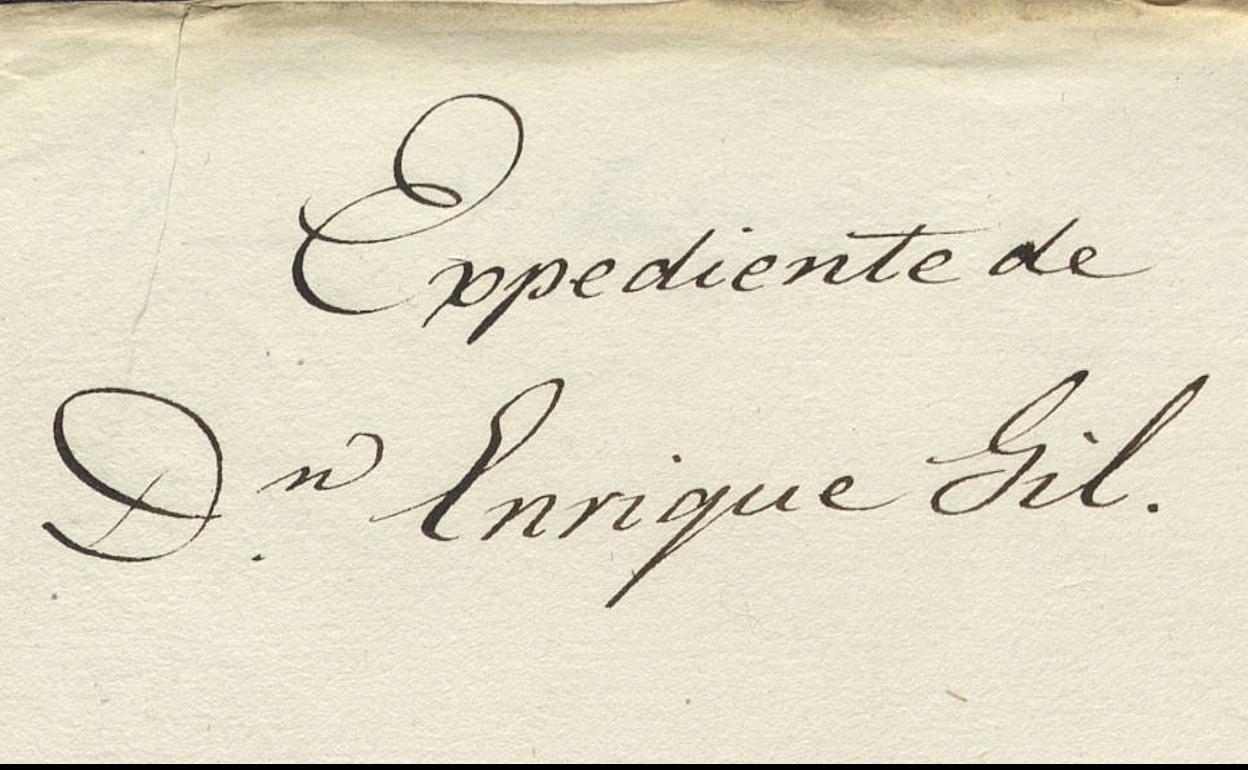 Expediente de
D.n Enrique Gil.